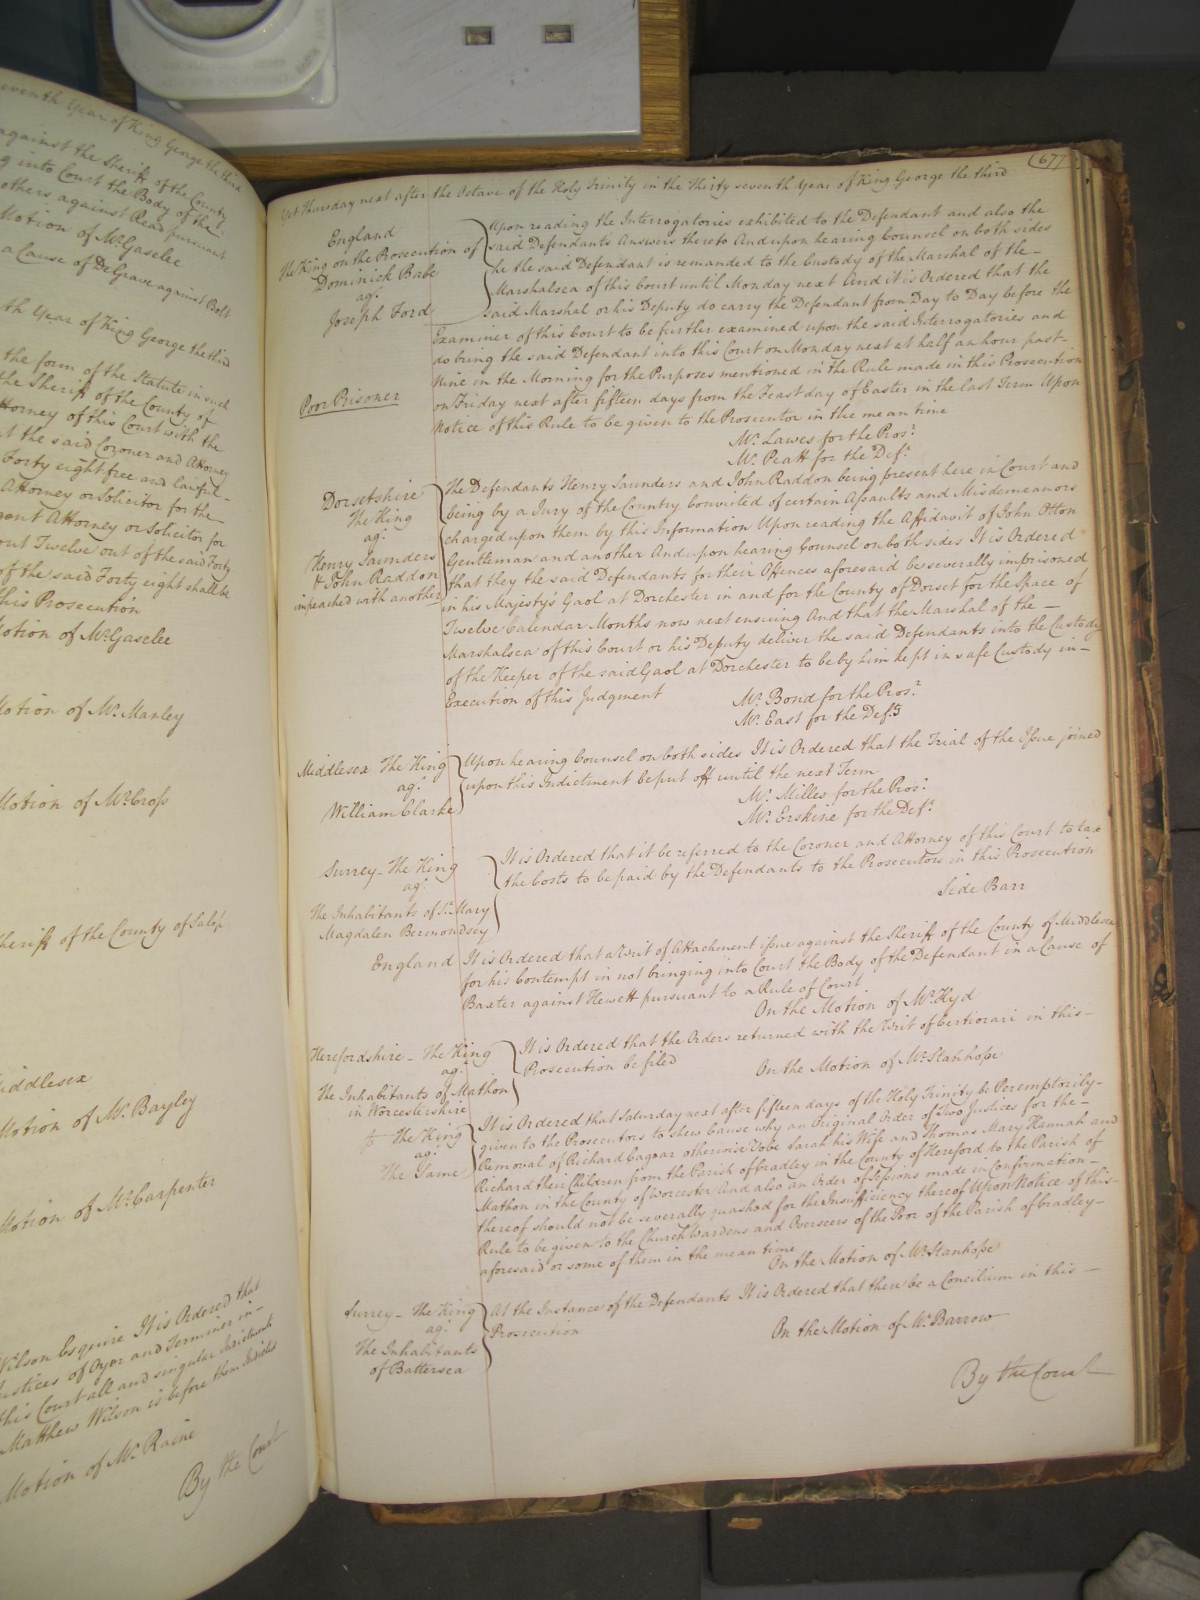 seventh Year of King George the third
against the Sheriff of the County
into Court the Body of the
others against Read pursuant
Motion of Mr. Gaselee
a Cause of DeGrave against Bolt
th Year of King George the third
the form of the Statute in such
the Sheriff of the County of
Attorney of this Court with the
the said Coroner and Attorney
Forty eight free and lawful-
Attorney or Solicitor for the-
Attorney or Solicitor for
out Twelve out of the said Forty
of the said Forty eight shall be
this Prosecution
Motion of Mr. Gaselee
Motion of Mr. Manley
Motion of Mr. Cross
Sheriff of the County of Salop
Middlesex
Motion of Mr. Bayley
Motion of Mr. Carpenter
Wilson Esquire It is Ordered that
Justices of Oyer and Terminer in-
this Court all and singular Indictments
Matthew Wilson is before them Indicted
Motion of Mr. Raine
By the Court
67
Yet Thursday next after the Octave of the Holy Trinity in the Thirty seventh Year of King George the third
England
The King on the Prosecution of
Dominick Babe
agt.
Joseph Ford
Poor Prisoner
Upon reading the Interrogatories exhibited to the Defendant and also the
said Defendants Answers thereto And upon hearing Counsel on both sides
he the said Defendant is remanded to the Custody of the Marshal of the-
Marshalsea of this Court until Monday next And it is Ordered that the
said Marshal or his Deputy do carry the Defendant from Day to Day before the
Examiner of this Court to be further examined upon the said Interrogatories and
do bring the said Defendant into this Court on Monday next at half an hour past-
Nine in the Morning for the Purposes mentioned in the Rule made in this Prosecution
on Friday next after fifteen days from the Feast day of Easter in the last Term Upon
Notice of this Rule to be given to the Prosecutor in the mean time
Mr. Lawes for the Prosr.
Mr. Peatt for the Deft.
Dorsetshire
The King
agt.
Henry Saunders
& John Raddon
impeached with another
The Defendants Henry Saunders and John Raddon being present here in Court and
being by a Jury of the Country convicted of certain Assaults and Misdemeanors
charged upon them by this Information Upon reading the Affidavit of John Otton
Gentleman and another And upon hearing Counsel on both sides It is Ordered
that they the said Defendants for their Offences aforesaid be severally imprisoned
in his Majesty's Gaol at Dorchester in and for the County of Dorset for the Space of
Twelve Calendar Months now next ensuing And that the Marshal of the-
Marshalsea of this Court or his Deputy deliver the said Defendants into the Custody
of the Keeper of the said Gaol at Dorchester to be by him kept in safe Custody in-
Execution of this Judgment
Mr. Bond for the Prosr.
Mr. East for the Defts.
Middlesex The King
agt.
William Clarke
Upon hearing Counsel on both sides It is Ordered that the Trial of the Issue joined
upon this Indictment be put off until the next Term
Mr. Milles for the Prosr.
Mr. Erskine for the Deft.
Surrey- The King
agt.
The Inhabitants of St. Mary
Magdalen Bermondsey
It is Ordered that it be referred to the Coroner and Attorney of this Court to tax
the Costs to be paid by the Defendants to the Prosecutors in this Prosecution
Side Barr
England
It is Ordered that a Writ of Attachment issue against the Sheriff of the County of Middlesex
for his Contempt in not bringing into Court the Body of the Defendant in a Cause of
Baxter against Hewett pursuant to a Rule of Court
On the Motion of Mr. Hyd
Herefordshire- The King
agt.
The Inhabitants of Mathon
in Worcestershire
It is Ordered that the Orders returned with the Writ of Certiorari in this-
Prosecution be filed
On the Motion of Mr. Stanhope
The King
agt.
The Same
It is Ordered that Saturday next after fifteen days of the Holy Trinity be Peremptorily-
given to the Prosecutors to shew Cause why an Original Order of Two Justices for the-
Removal of Richard otherwise Sarah his Wife and Thomas Mary Hannah and
Richard their Children from the Parish of Cradley in the County of Hereford to the Parish of
Mathon in the County of Worcester And also an Order of Sessions made in Confirmation-
thereof should not be severally quashed for the Insufficiency thereof Upon Notice of this-
Rule to be given to the Church Wardens and Overseers of the Poor of the Parish of Cradley-
aforesaid or some of them in the mean time
On the Motion of Mr. Stanhope
Surrey- The King
agt.
The Inhabitants
of Battersea
At the Instance of the Defendants It is Ordered that there be a Concilium in this-
Prosecution
On the Motion of Mr. Barrow
By the Court